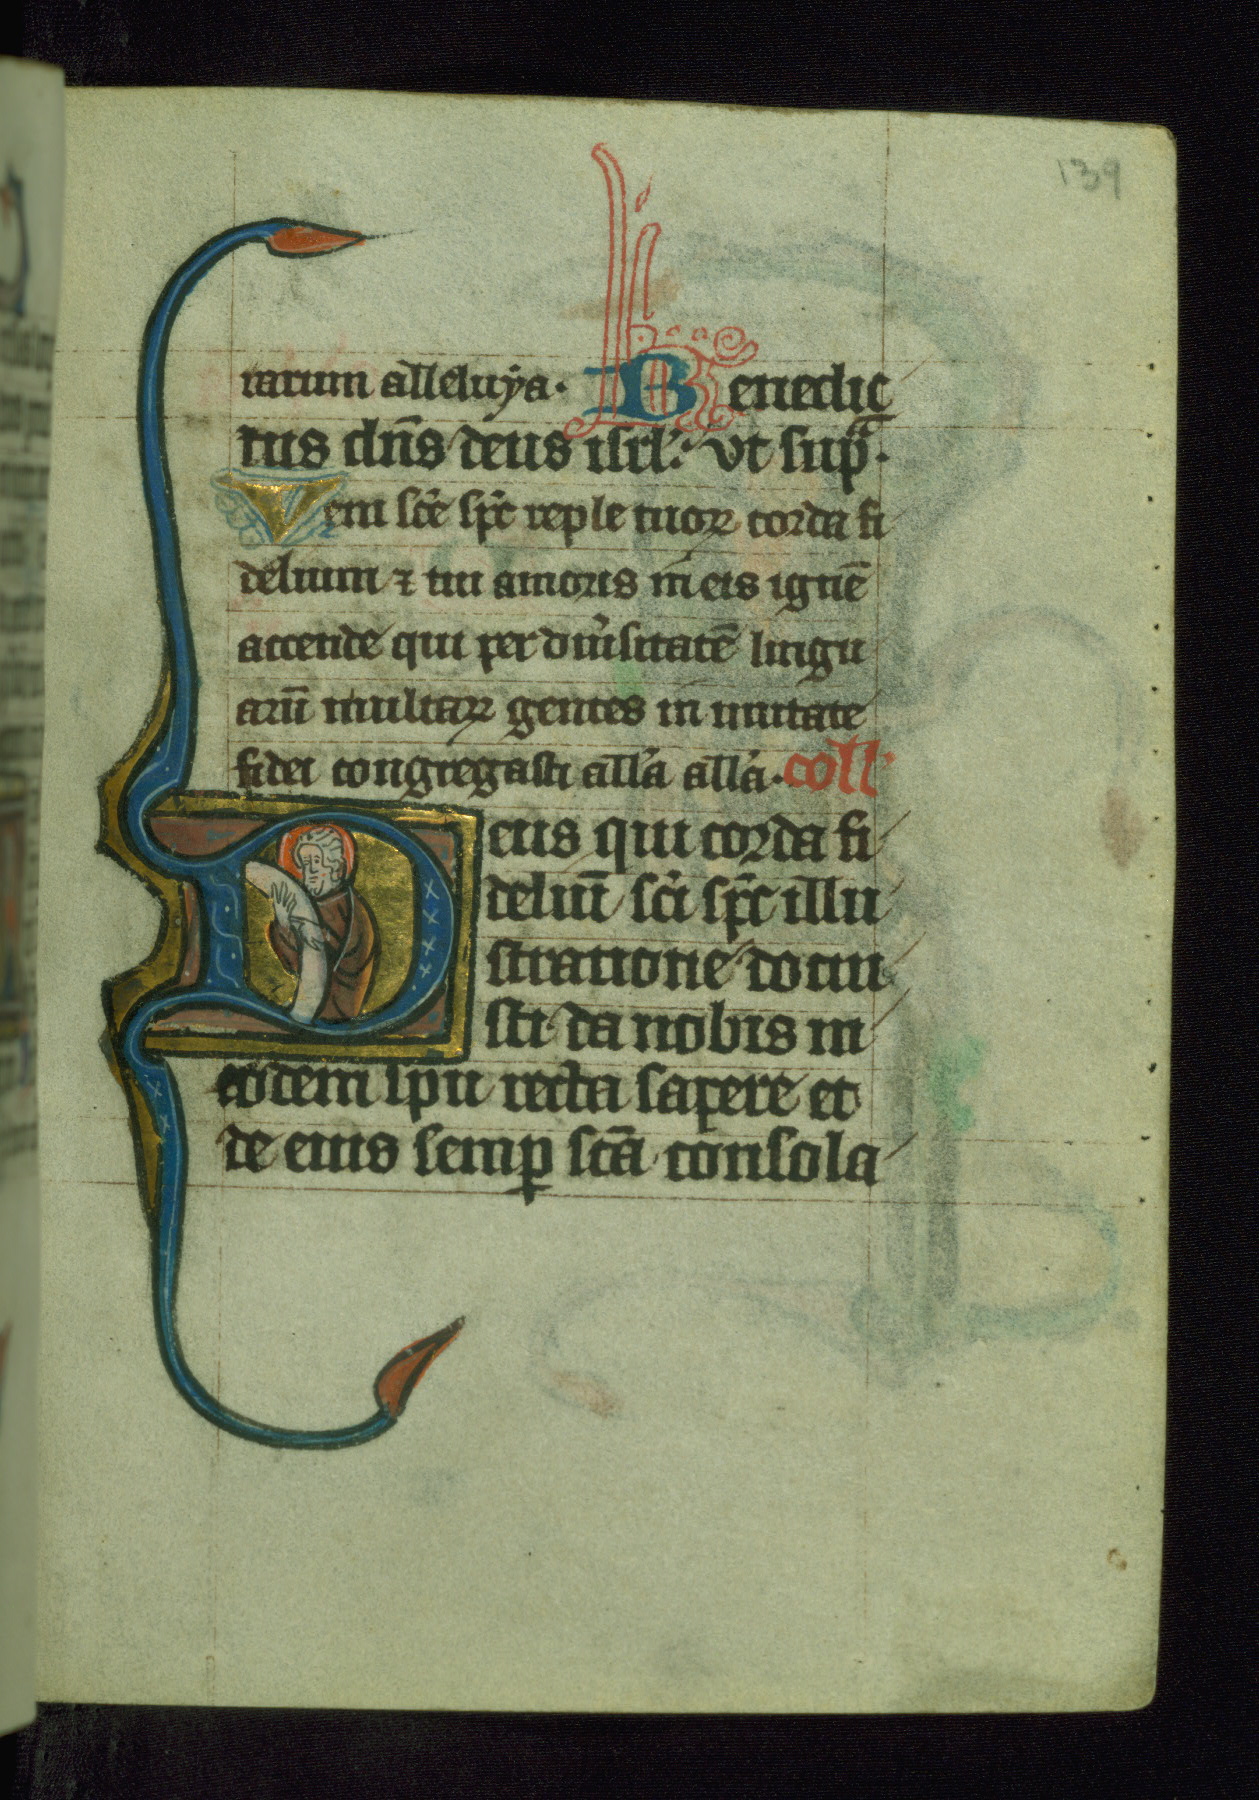 139
tarum alleluya. Benedic
tus dn̄s deus isrl'. vt sup̄ᵃ.
Veni sc̄e sp̄c reple tuoꝝ corda fi
delium ⁊ tui amoris in eis ignē
accende qui per diu̾sitatē lingu
arū multaꝝ gentes in unitate
fidei congregasti all'a all'a. coll'
Deus qui corda fi
deliū sc̄i sp̄c illu
stratione docui
sti da nobis in
eodem spū recta sapere et
de eius semꝑ sc̄a consola